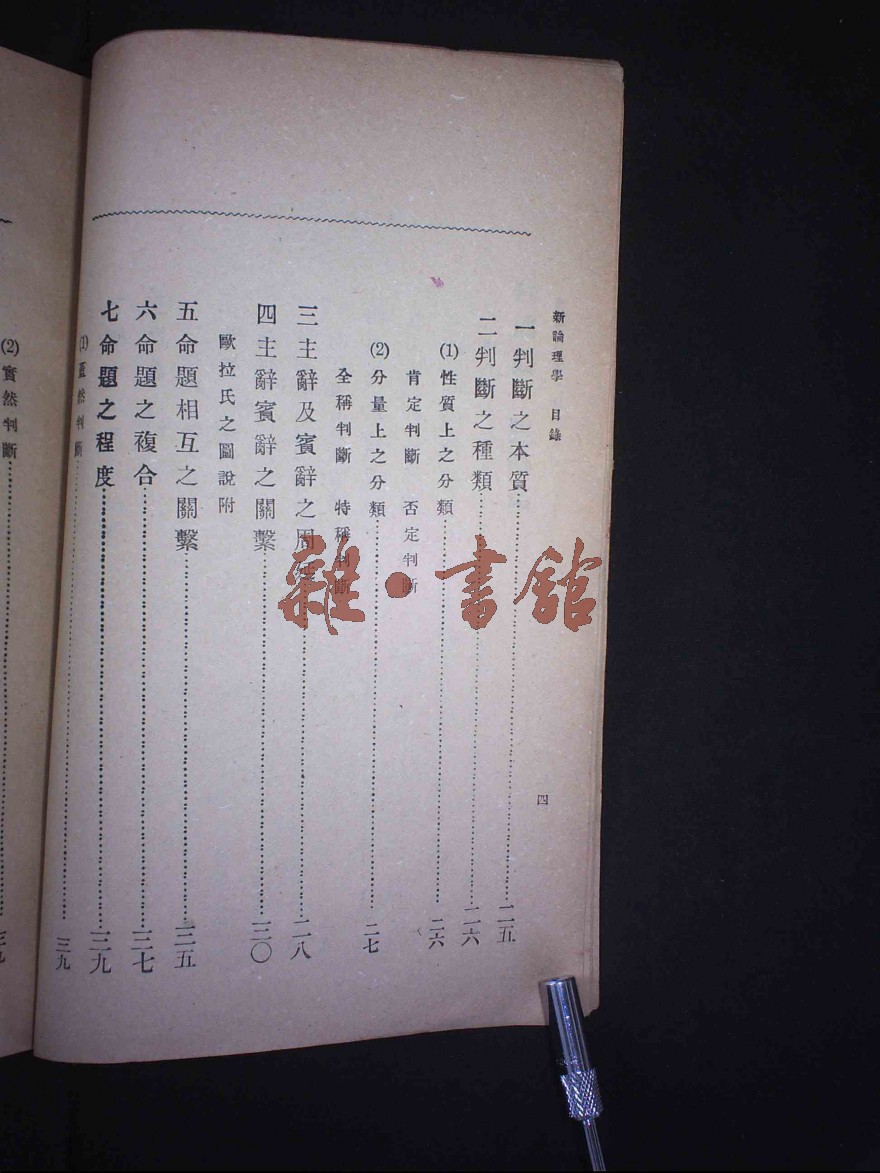 新論理學 目錄
四
一判斷之本質……二五
二判斷之種類……二六
(1)性質上之分類……二六
肯定判斷 否定判斷
(2)分量上之分類……二七
全稱判斷 特稱判斷
三主辭及賓辭之周延……二八
四主辭賓辭之關繫……三〇
歐拉氏之圖說附
五命題相互之關繫……三五
六命題之複合……三七
七命題之程度……三九
(1)蓋然判斷……三九
(2)實然判斷……
雜·書館